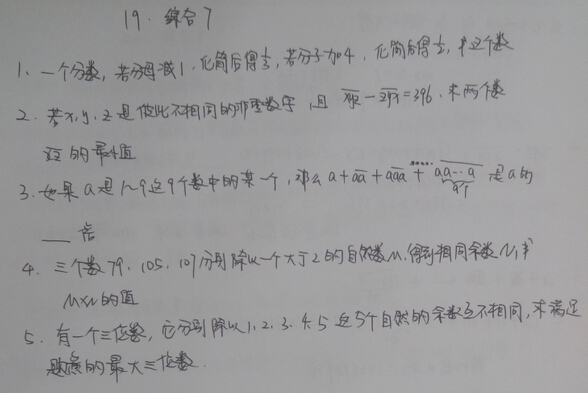 19. 综合7
1、一个分数，若分母减1，化简后得1/3，若分子加4，化简后得1/2，求这个数
2. 若x, y, z是彼此不相同的非零数字，且 xyz − zyx = 396，求两位数
xz 的最大值
3、如果a是1~9这9个数中的某一个，那么 a + aa + aaa + …… + aa…a 9个 是a的
___ 倍
4、三个数79、105、107分别除以一个大于2的自然数M，得到相同余数N，求
M×N的值
5、有一个三位数，它分别除以1、2、3、4、5这5个自然的余数互不相同，求满足
题意的最大三位数.